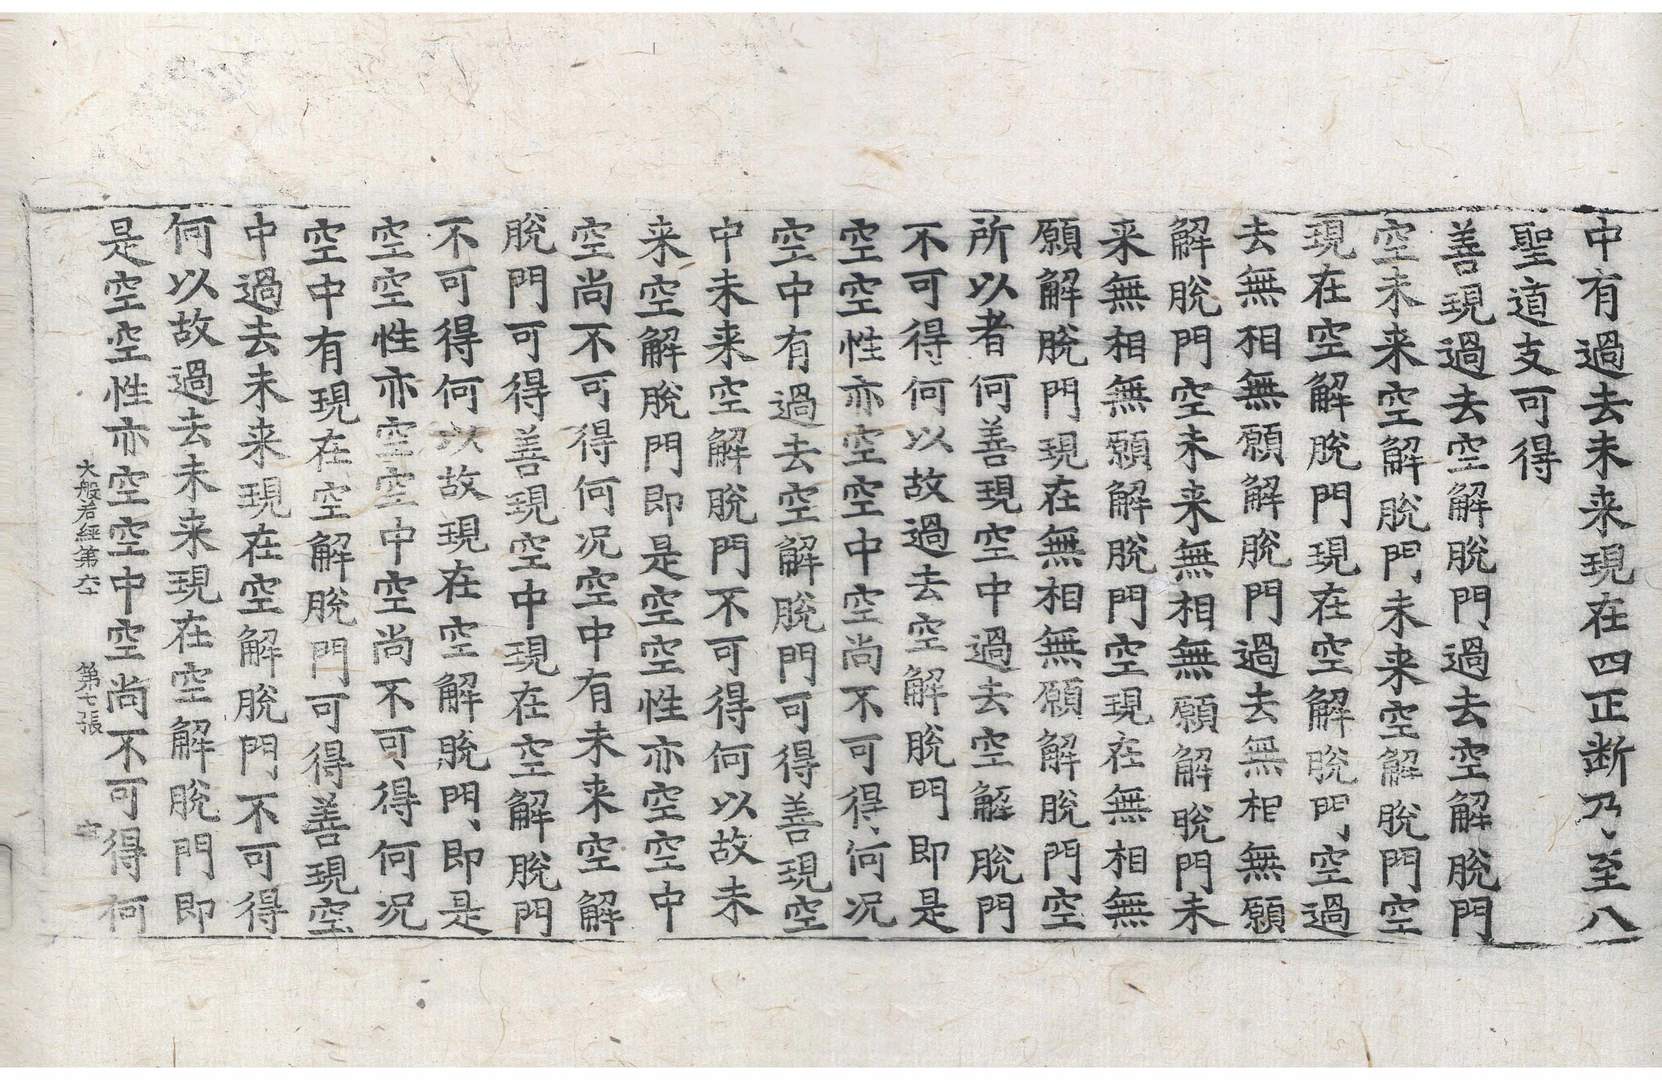 中有過去未来現在四正断乃至八
聖道支可得
善現過去空解脫門過去空解脫門
空未来空解脫門未来空解脫門空
現在空解脫門現在空解脫門空過
去無相無願解脫門過去無相無願
解脫門空未来無相無願解脫門未
来無相無願解脫門空現在無相無
願解脫門現在無相無願解脫門空
所以者何善現空中過去空解脫門
不可得何以故過去空解脫門即是
空空性亦空空中空尚不可得何况
空中有過去空解脫門可得善現空
中未来空解脫門不可得何以故未
来空解脫門即是空空性亦空空中
空尚不可得何况空中有未来空解
脫門可得善現空中現在空解脫門
不可得何以故現在空解脫門即是
空空性亦空空中空尚不可得何况
空中有現在空解脫門可得善現空
中過去未来現在空解脫門不可得
何以故過去未来現在空解脫門即
是空空性亦空空中空尚不可得何
大般若經第六十 第七張